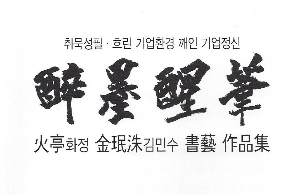 취묵성필 · 흐린 기업환경 깨인 기업정신
醉墨醒筆
火亭화정 金珉洙김민수 書藝 作品集